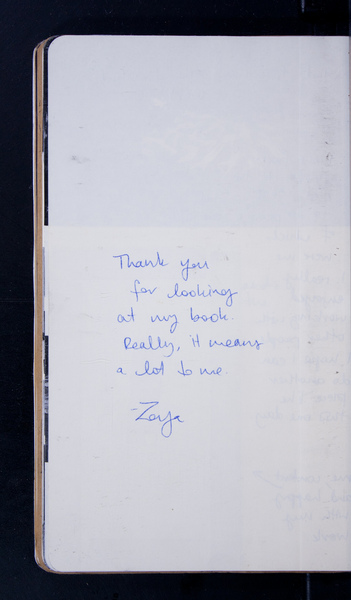 Thank you
for looking
at my book.
Really, it means
a lot to me.
-Zoya